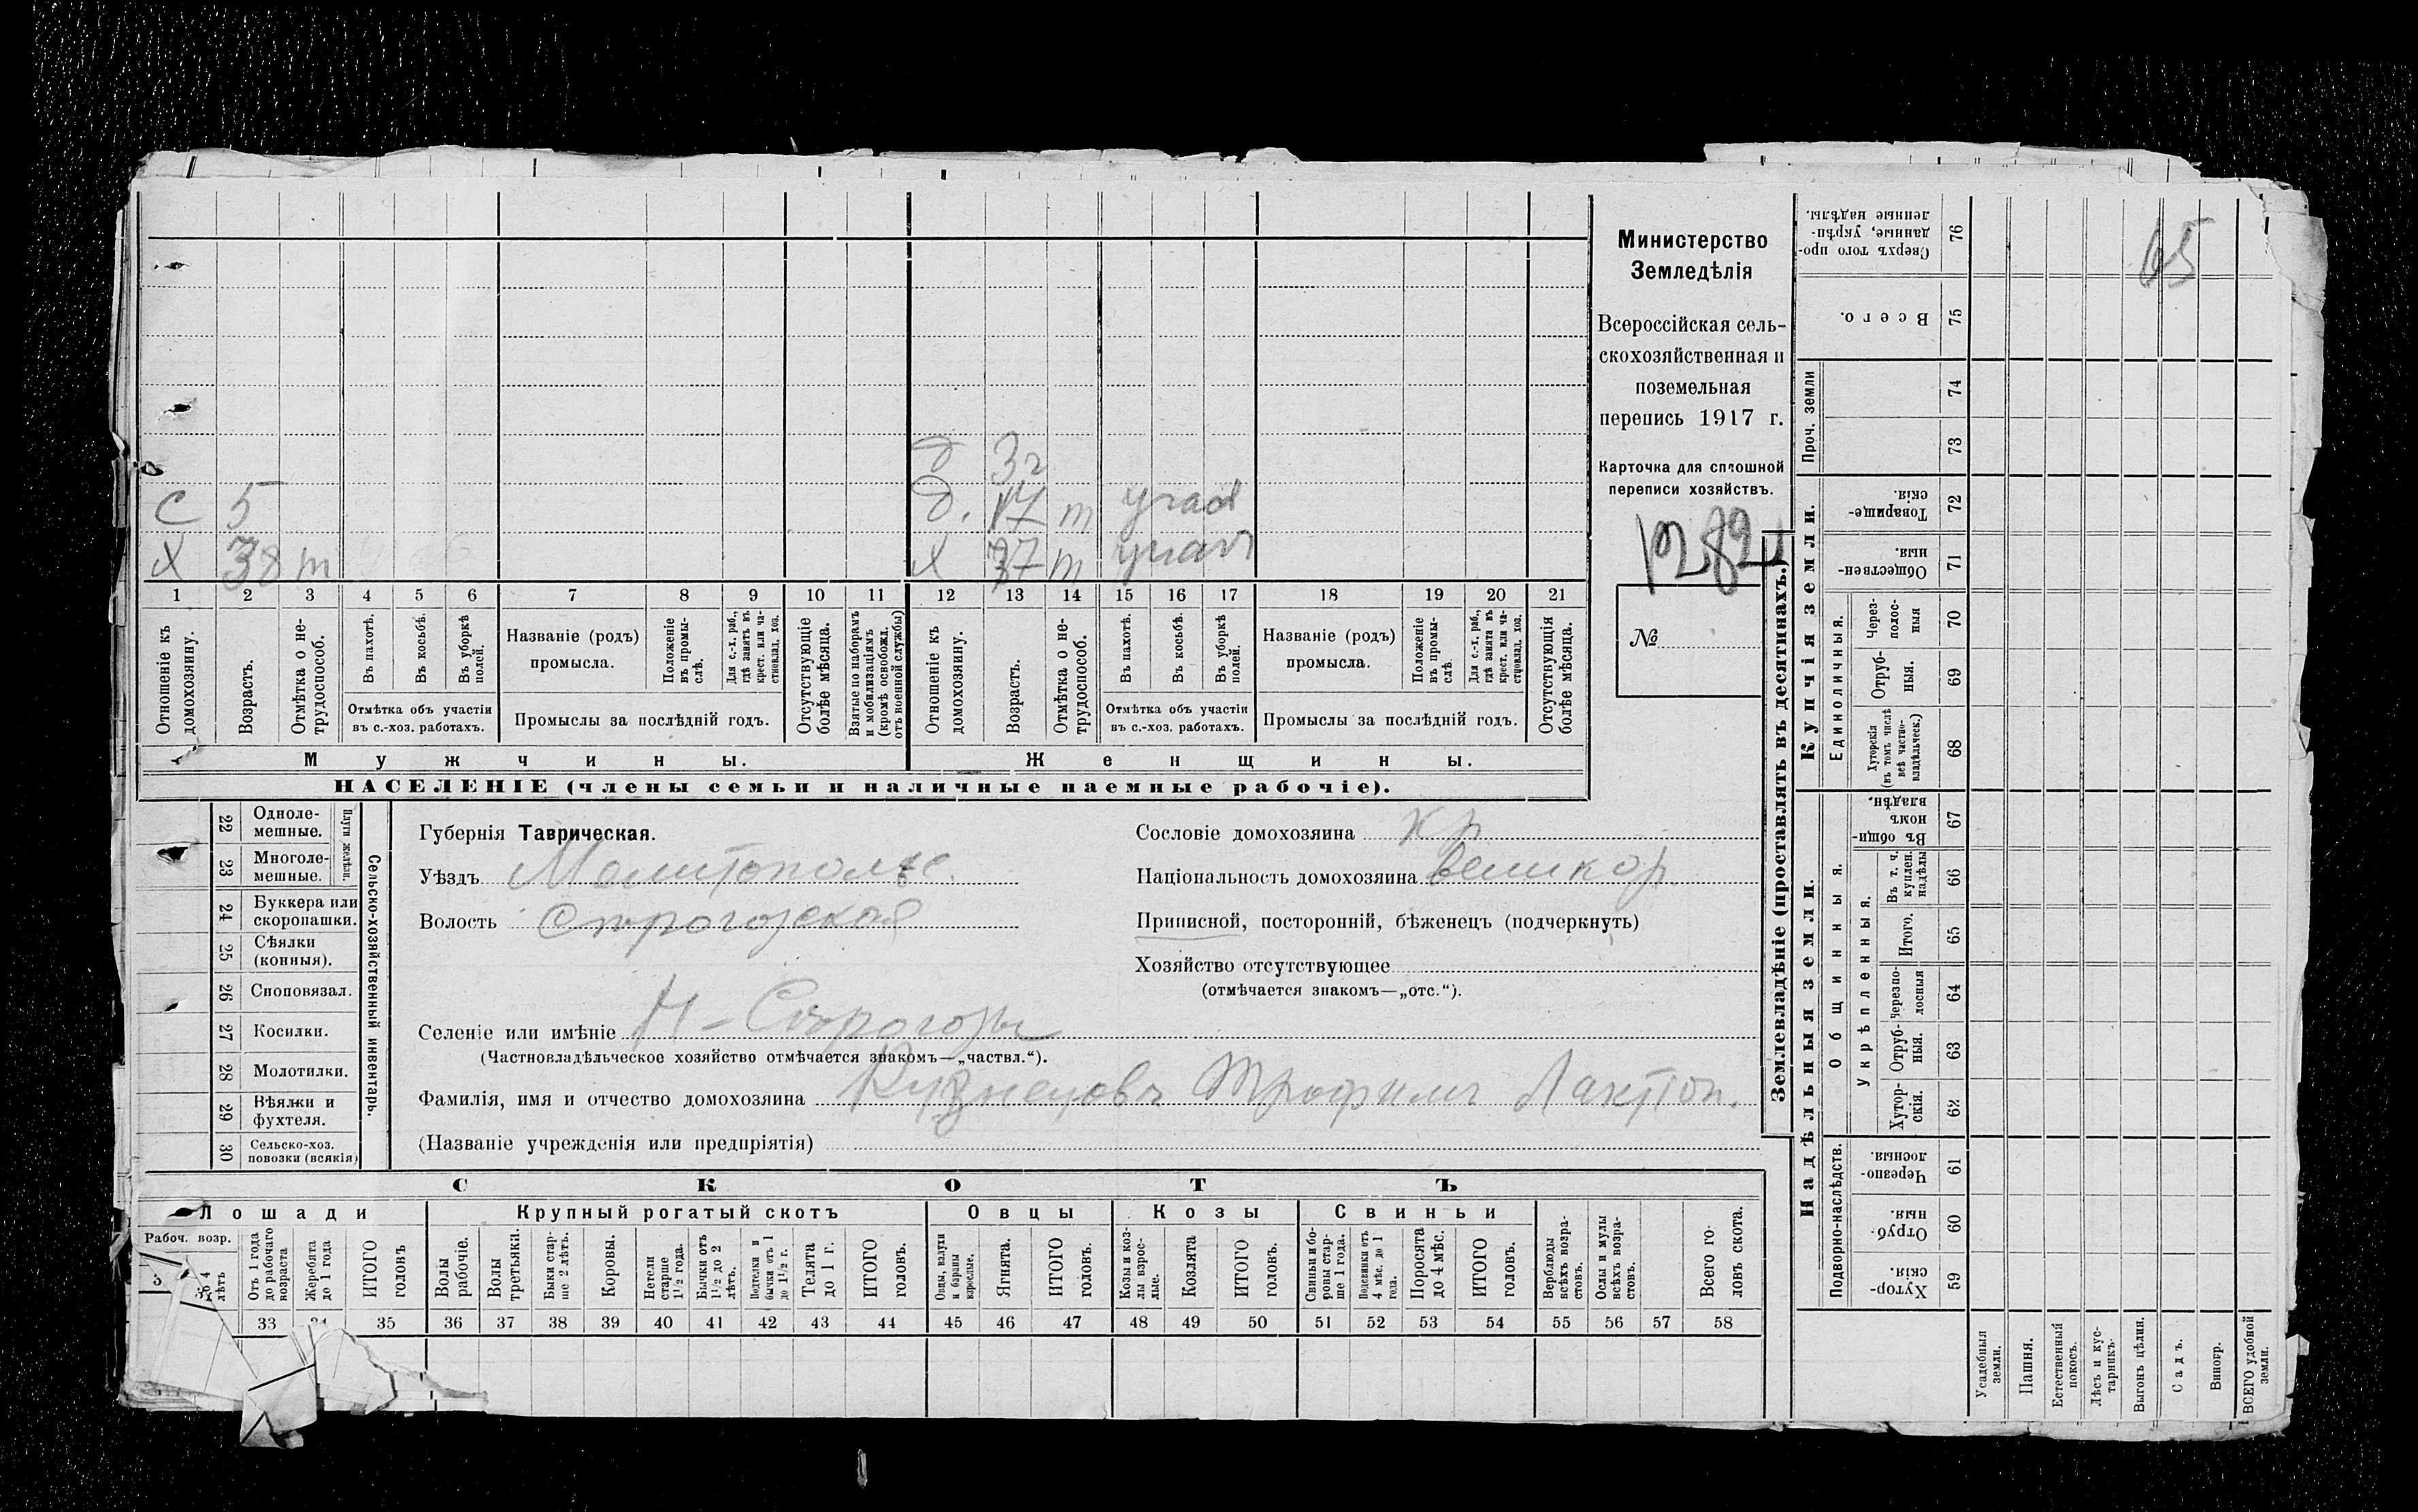 д 3г
с 5 д. 17 т
х 38 т х 37 т
1 2 3 4 5 6 7 8 9 10 11 12 13 14 15 16 17 18 19 20 21
Отношеніе къ домохозяину.
Возрастъ.
Отмѣтка о не-трудоспособ.
Въ пахотѣ.
Въ косьбѣ.
Въ уборкѣ полей.
Отмѣтка объ участіи
въ с.-хоз. работахъ.
Названіе (родъ)
промысла.
Положеніе въ промы-слѣ.
Для с.-х. раб., гдѣ занятъ въ крест. или ча-стновлад. хоз.
Промыслы за послѣдній годъ.
Отсутствующіе болѣе мѣсяца.
Взятые по наборамъ и мобилизаціямъ (кромѣ освобожд. отъ военной службы)
Отношеніе къ домохозяину.
Возрастъ.
Отмѣтка о не-трудоспособ.
Въ пахотѣ.
Въ косьбѣ.
Въ уборкѣ полей.
Отмѣтка объ участіи
въ с.-хоз. работахъ.
Названіе (родъ)
промысла.
Положеніе въ промы-слѣ.
Для с.-х. раб., гдѣ занята въ крест. или ча-стновлад. хоз.
Промыслы за послѣдній годъ.
Отсутствующія болѣе мѣсяца.
Мужчины. Женщины.
НАСЕЛЕНІЕ (члены семьи и наличные наемные рабочіе).
Министерство
Земледѣлія
Всероссійская сель-
скохозяйственная и
поземельная
перепись 1917 г.
Карточка для сплошной
переписи хозяйствъ.
№
22 Одноле-мешные.
23 Многоле-мешные.
Плуги желѣзн.
24 Буккера или скоропашки.
25 Сѣялки (конныя).
26 Сноповязал.
27 Косилки.
28 Молотилки.
29 Вѣялки и фухтеля.
30 Сельско-хоз. повозки (всякія)
Сельско-хозяйственный инвентарь.
Губернія Таврическая.
Уѣздъ Мелитопольс.
Волость Строгозская
Селеніе или имѣніе Н-Строгозы
(Частновладѣльческое хозяйство отмѣчается знакомъ—„частвл.“).
Фамилія, имя и отчество домохозяина Кузнецовъ Трофимъ Лактіон.
(Названіе учрежденія или предпріятія)
Сословіе домохозяина кр
Національность домохозяина великор.
Приписной, посторонній, бѣженецъ (подчеркнуть)
Хозяйство отсутствующее
(отмѣчается знакомъ—„отс.“).
СКОТЪ
Лошади Крупный рогатый скотъ Овцы Козы Свиньи
Рабоч. возр.
4 лѣтъ
Отъ 1 года до рабочаго возраста
Жеребята до 1 года
ИТОГО головъ
Волы рабочіе.
Волы третьяки.
Быки стар-ше 2 лѣтъ.
Коровы.
Нетели старше 1½ года.
Бычки отъ 1½ до 2 лѣтъ.
Подтелки и бычки отъ 1 до 1½ г.
Телята до 1 г.
ИТОГО головъ.
Овцы, валухи и бараны взрослые.
Ягнята.
ИТОГО головъ.
Козы и коз-лы взрос-лые.
Козлята
ИТОГО головъ.
Свиньи и бо-ровы стар-ше 1 года.
Подсвинки отъ 4 мѣс. до 1 года.
Поросята до 4 мѣс.
ИТОГО головъ.
Верблюды всѣхъ возра-стовъ.
Ослы и мулы всѣхъ возра-стовъ.
Всего го-ловъ скота.
33 34 35 36 37 38 39 40 41 42 43 44 45 46 47 48 49 50 51 52 53 54 55 56 57 58
Землевладѣніе (проставлять въ десятинахъ.)
65
Сверхъ того про-данные, укрѣп-ленные надѣлы. 76
Всего. 75
Проч. земли 74
73
Купчія земли.
Товарище-скія. 72
Обществен-ныя. 71
Единоличныя.
Через-полос-ныя 70
Отруб-ныя. 69
Хуторскія (въ томъ числѣ всѣ частно-владѣльческ.) 68
Надѣльныя земли.
Общинныя.
Въ общи-номъ владѣн. 67
Укрѣпленныя.
Въ т. ч. куплен. надѣлы 66
Итого. 65
Черезпо-лосныя 64
Отруб-ныя. 63
Хутор-скія. 62
Подворно-наслѣдств.
Черезпо-лосныя. 61
Отруб-ныя. 60
Хутор-скія 59
Усадебныя земли.
Пашня.
Естественный покосъ.
Лѣсъ и кус-тарникъ.
Выгонъ цѣлин.
Садъ.
Виногр.
ВСЕГО удобной земли.